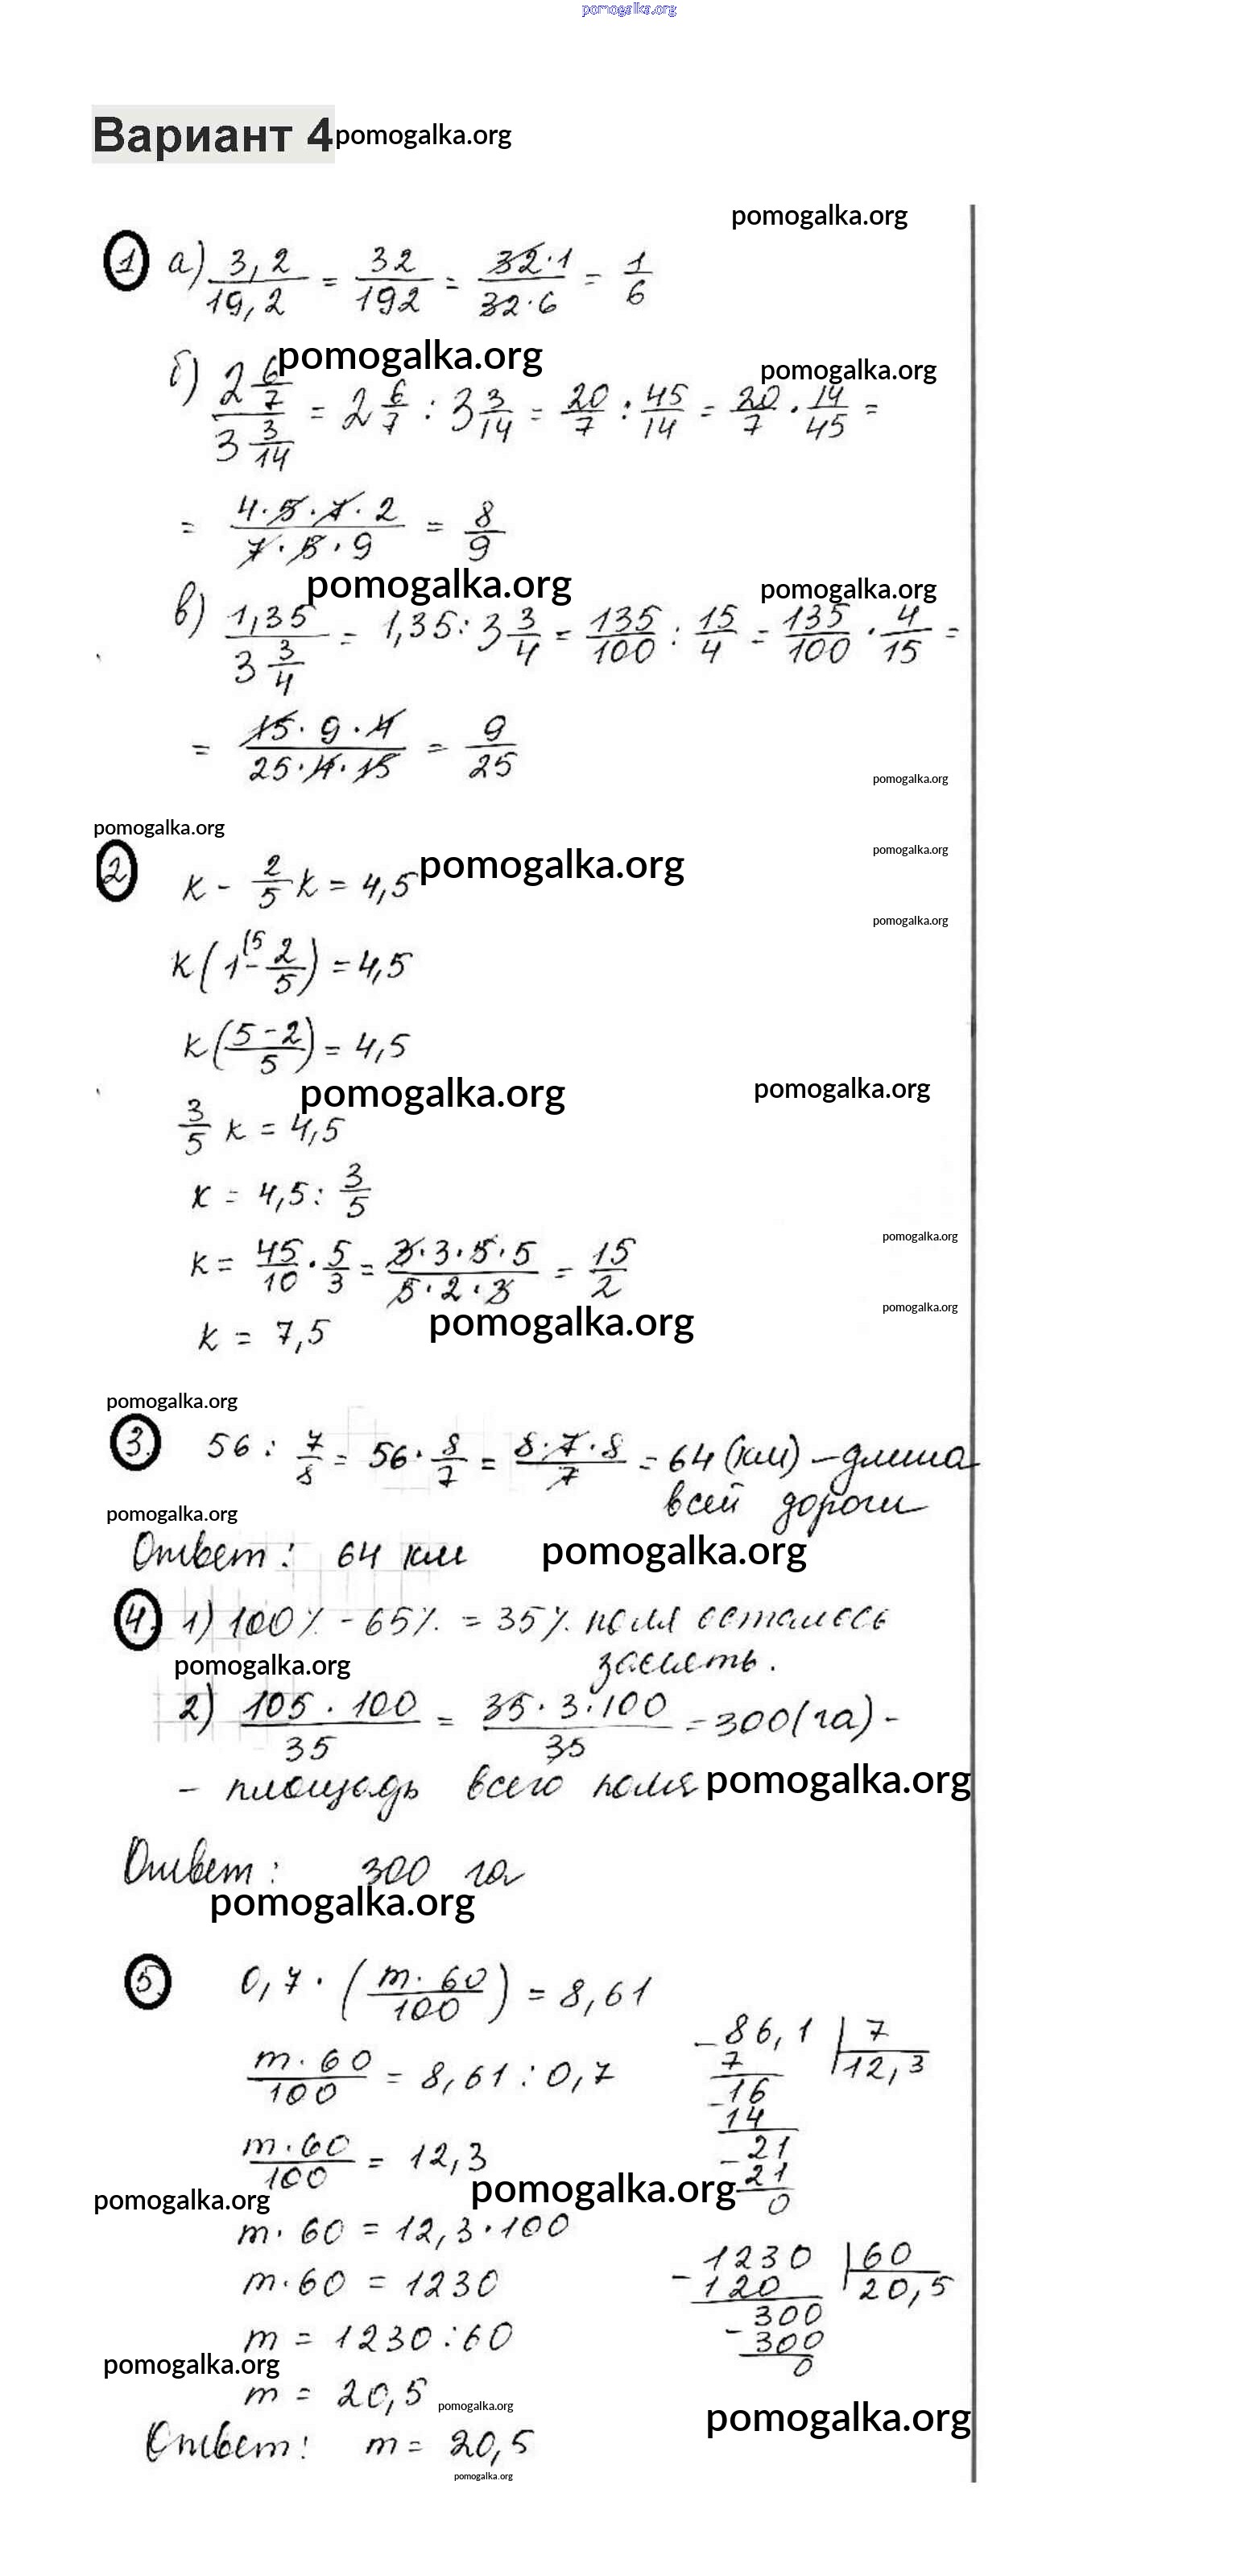 pomogalka.org
Вариант 4 pomogalka.org
pomogalka.org
1 а) 3,2/19,2 = 32/192 = 32·1/32·6 = 1/6
pomogalka.org
pomogalka.org
б) 2 6/7 / 3 3/14 = 2 6/7 : 3 3/14 = 20/7 : 45/14 = 20/7 · 14/45 =
= 4·5·7·2/7·5·9 = 8/9
pomogalka.org
pomogalka.org
в) 1,35 / 3 3/4 = 1,35 : 3 3/4 = 135/100 : 15/4 = 135/100 · 4/15 =
= 15·9·4/25·4·15 = 9/25
pomogalka.org
pomogalka.org
pomogalka.org
2 к - 2/5 к = 4,5 pomogalka.org
pomogalka.org
к(1 (5 - 2/5) = 4,5
к(5-2/5) = 4,5
pomogalka.org
pomogalka.org
3/5 к = 4,5
к = 4,5 : 3/5
pomogalka.org
к = 45/10 · 5/3 = 3·3·5·5/5·2·3 = 15/2
pomogalka.org
pomogalka.org
к = 7,5
pomogalka.org
3. 56 : 7/8 = 56 · 8/7 = 8·7·8/7 = 64 (км) – длина
всей дороги
pomogalka.org
Ответ: 64 км pomogalka.org
4. 1) 100% - 65% = 35% поля осталось
засеять.
pomogalka.org
2) 105·100/35 = 35·3·100/35 = 300 (га) -
- площадь всего поля pomogalka.org
Ответ: 300 га
pomogalka.org
5. 0,7 · (m·60/100) = 8,61
m·60/100 = 8,61 : 0,7
m·60/100 = 12,3
- 86,1 | 7
7 12,3
- 16
14
- 21
21
0
pomogalka.org
pomogalka.org
m·60 = 12,3·100
m·60 = 1230
m = 1230 : 60
- 1230 | 60
120 20,5
- 300
300
0
pomogalka.org
m = 20,5 pomogalka.org
pomogalka.org
Ответ: m = 20,5
pomogalka.org